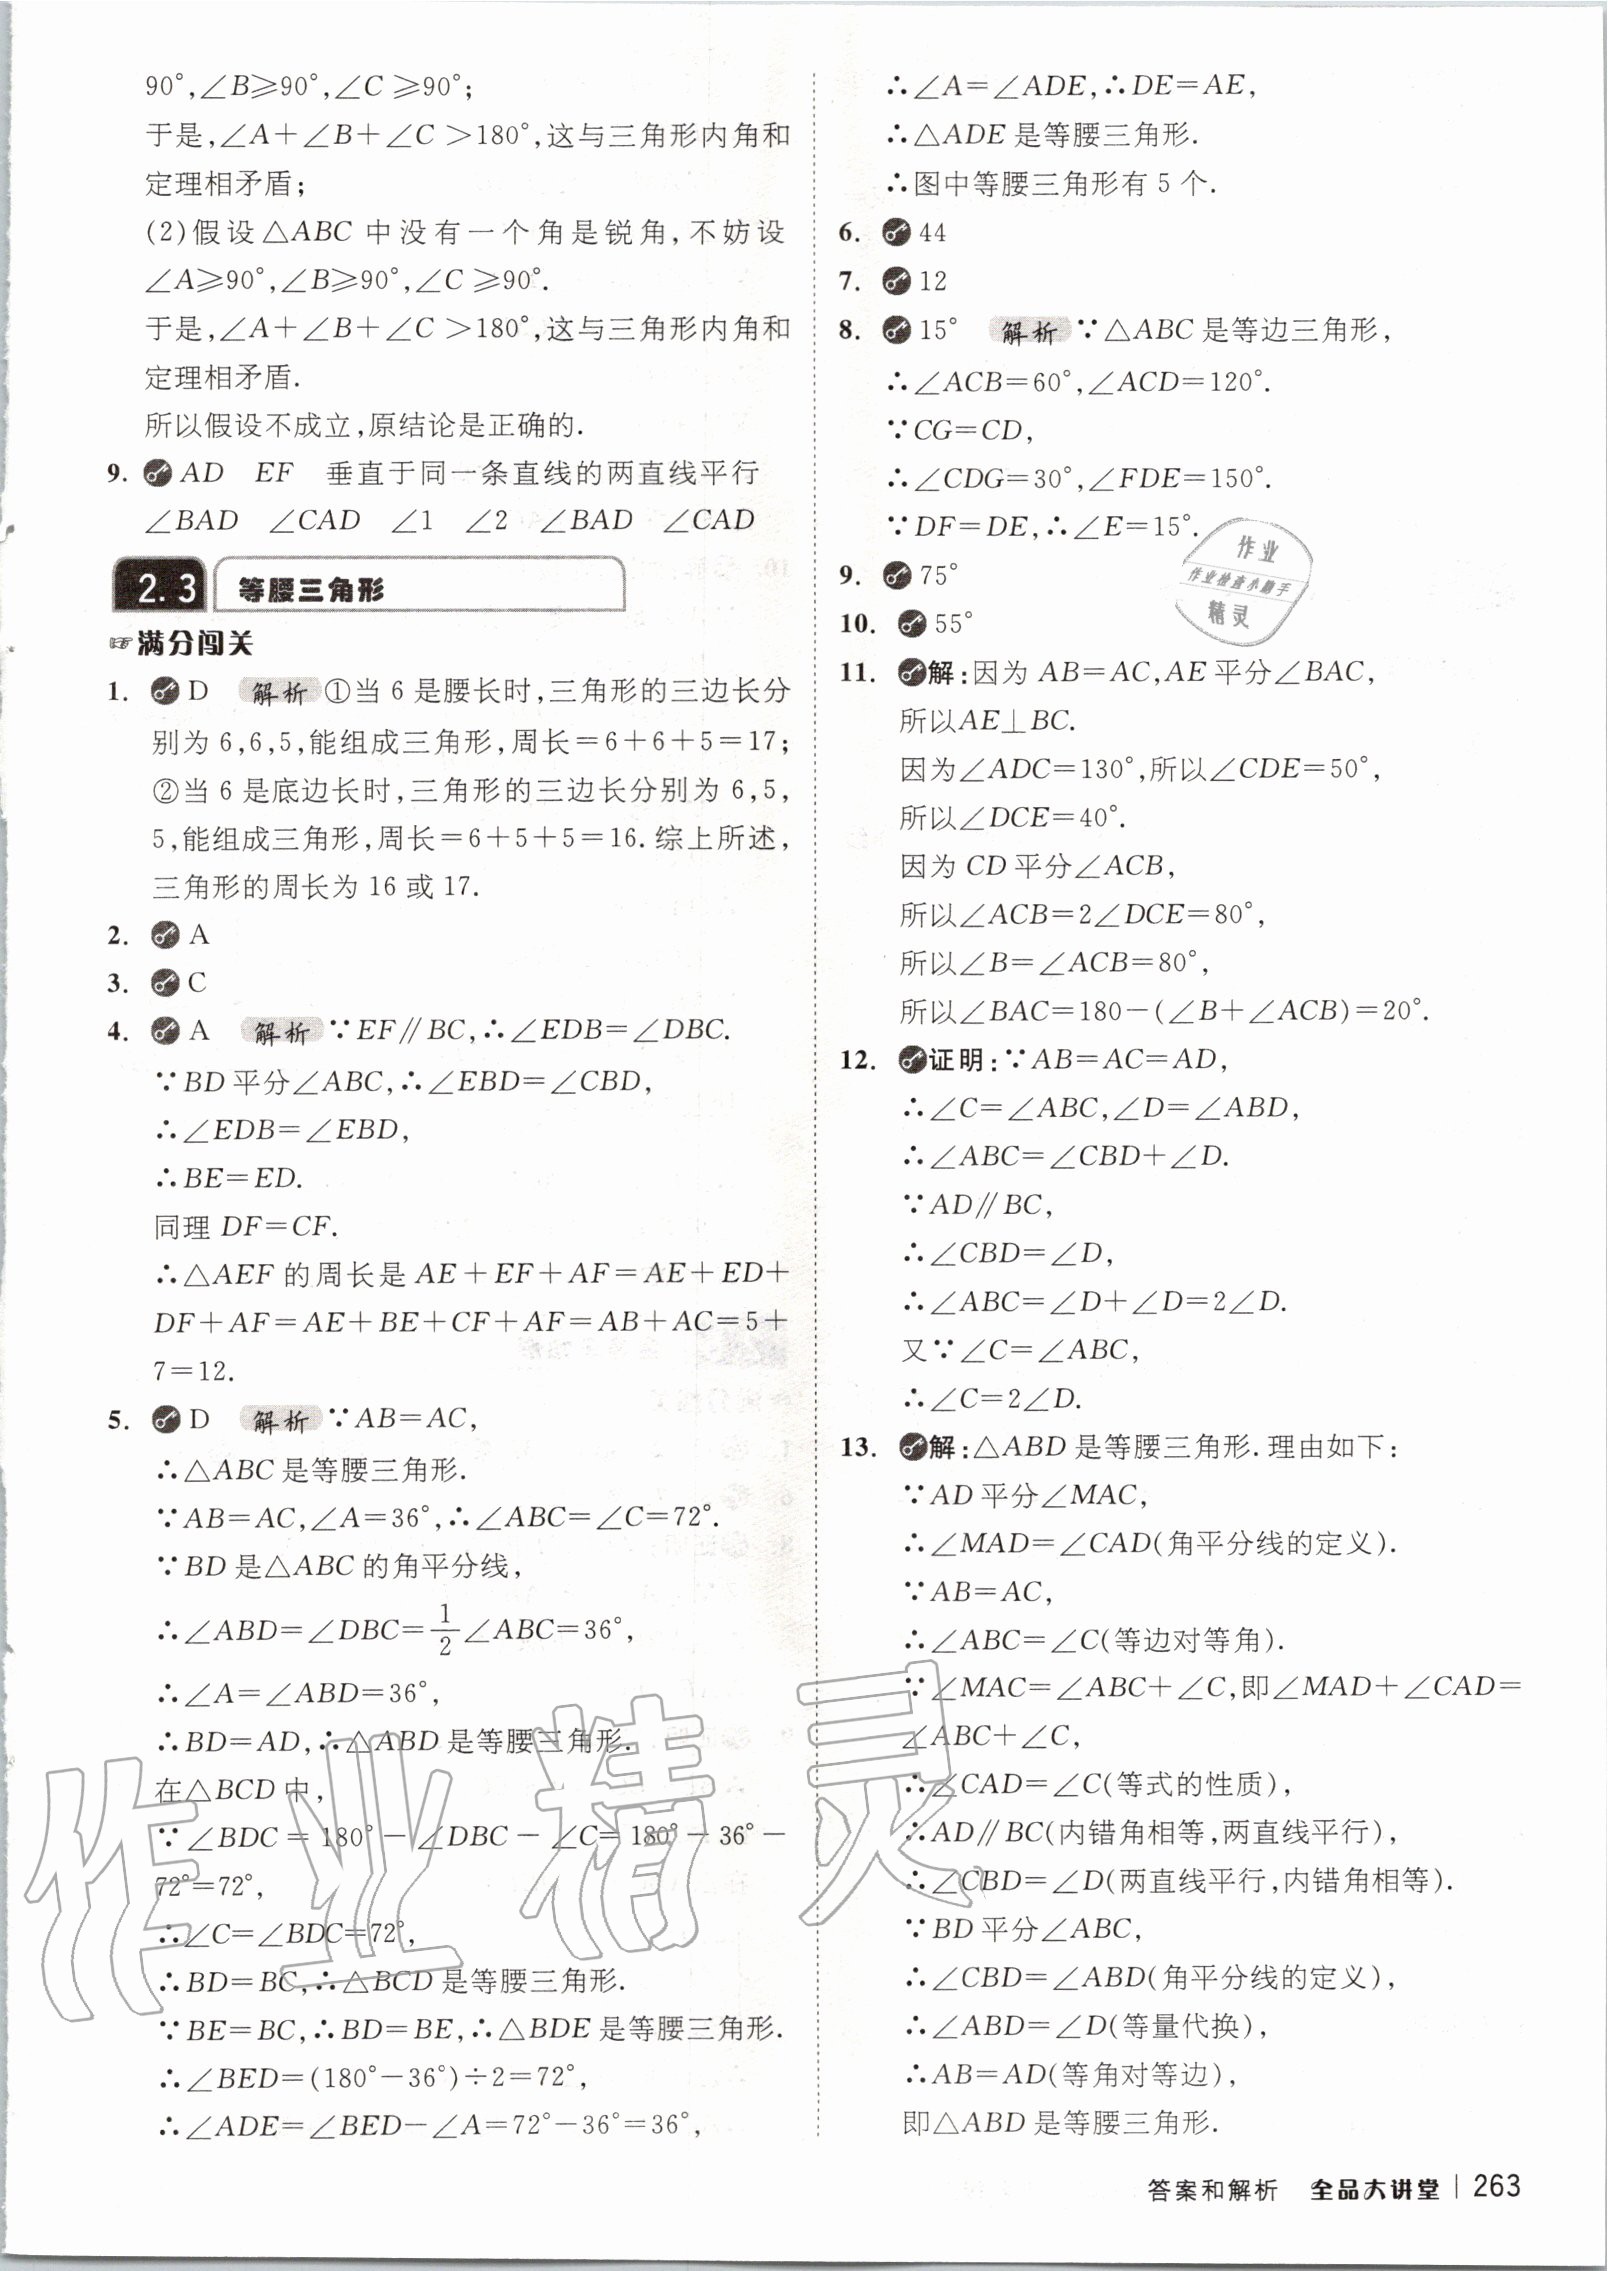 90°,∠B≥90°,∠C≥90°;
于是,∠A+∠B+∠C>180°,这与三角形内角和
定理相矛盾;
(2)假设△ABC中没有一个角是锐角,不妨设
∠A≥90°,∠B≥90°,∠C≥90°.
于是,∠A+∠B+∠C>180°,这与三角形内角和
定理相矛盾.
所以假设不成立,原结论是正确的.
9. AD EF 垂直于同一条直线的两直线平行
∠BAD ∠CAD ∠1 ∠2 ∠BAD ∠CAD
2.3 等腰三角形
☞满分闯关
1. D 解析 ①当6是腰长时,三角形的三边长分
别为6,6,5,能组成三角形,周长=6+6+5=17;
②当6是底边长时,三角形的三边长分别为6,5,
5,能组成三角形,周长=6+5+5=16.综上所述,
三角形的周长为16或17.
2. A
3. C
4. A 解析 ∵EF∥BC,∴∠EDB=∠DBC.
∵BD平分∠ABC,∴∠EBD=∠CBD,
∴∠EDB=∠EBD,
∴BE=ED.
同理DF=CF.
∴△AEF的周长是AE+EF+AF=AE+ED+
DF+AF=AE+BE+CF+AF=AB+AC=5+
7=12.
5. D 解析 ∵AB=AC,
∴△ABC是等腰三角形.
∵AB=AC,∠A=36°,∴∠ABC=∠C=72°.
∵BD是△ABC的角平分线,
∴∠ABD=∠DBC=1/2∠ABC=36°,
∴∠A=∠ABD=36°,
∴BD=AD,∴△ABD是等腰三角形.
在△BCD中,
∵∠BDC=180°-∠DBC-∠C=180°-36°-
72°=72°,
∴∠C=∠BDC=72°,
∴BD=BC,∴△BCD是等腰三角形.
∵BE=BC,∴BD=BE,∴△BDE是等腰三角形.
∴∠BED=(180°-36°)÷2=72°,
∴∠ADE=∠BED-∠A=72°-36°=36°,
∴∠A=∠ADE,∴DE=AE,
∴△ADE是等腰三角形.
∴图中等腰三角形有5个.
6. 44
7. 12
8. 15° 解析 ∵△ABC是等边三角形,
∴∠ACB=60°,∠ACD=120°.
∵CG=CD,
∴∠CDG=30°,∠FDE=150°.
∵DF=DE,∴∠E=15°.
9. 75°
10. 55°
11. 解:因为AB=AC,AE平分∠BAC,
所以AE⊥BC.
因为∠ADC=130°,所以∠CDE=50°,
所以∠DCE=40°.
因为CD平分∠ACB,
所以∠ACB=2∠DCE=80°,
所以∠B=∠ACB=80°,
所以∠BAC=180-(∠B+∠ACB)=20°.
12. 证明:∵AB=AC=AD,
∴∠C=∠ABC,∠D=∠ABD,
∴∠ABC=∠CBD+∠D.
∵AD∥BC,
∴∠CBD=∠D,
∴∠ABC=∠D+∠D=2∠D.
又∵∠C=∠ABC,
∴∠C=2∠D.
13. 解:△ABD是等腰三角形.理由如下:
∵AD平分∠MAC,
∴∠MAD=∠CAD(角平分线的定义).
∵AB=AC,
∴∠ABC=∠C(等边对等角).
∵∠MAC=∠ABC+∠C,即∠MAD+∠CAD=
∠ABC+∠C,
∴∠CAD=∠C(等式的性质),
∴AD∥BC(内错角相等,两直线平行),
∴∠CBD=∠D(两直线平行,内错角相等).
∵BD平分∠ABC,
∴∠CBD=∠ABD(角平分线的定义),
∴∠ABD=∠D(等量代换),
∴AB=AD(等角对等边),
即△ABD是等腰三角形.
作业
作业检查小助手
精灵
作业精灵
答案和解析 全品大讲堂 263